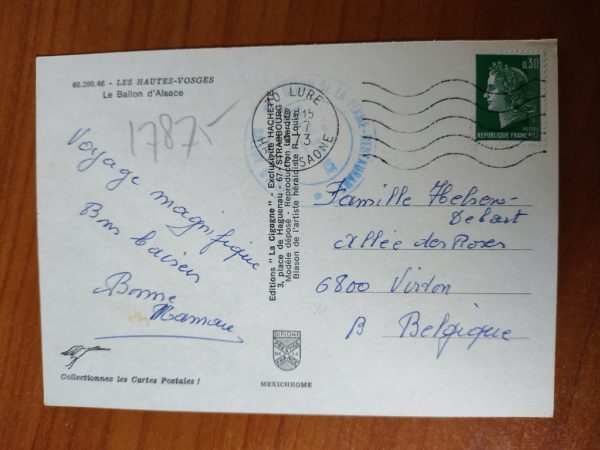 68.390.46 - LES HAUTES-VOSGES
Le Ballon d'Alsace
1787,-
Voyage magnifique
Bons baisers
Bonne
Maman
Collectionnez les Cartes Postales !
Editions "La Cigogne" - Exclusivité HACHETTE
3, place de Haguenau - 67 / STRASBOURG
Modèle déposé - Reproduction interdite
Blason de l'artiste héraldiste R. Louis
DIPLOME
PRESTIGE
DE LA
FRANCE
MEXICHROME
70 LURE
15
7
HTE SAONE
DE LA
RESTAURANT
0,30
POSTES
REPUBLIQUE FRANÇAISE
Famille
Allée des Roses
6800 Virton
B Belgique